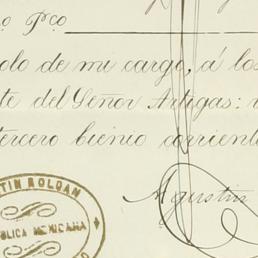 o Pco
olo de mi cargo, á los
te del Señor Artigas:
tercero bienio corriente
Agustin
TIN ROLDAN
BLICA MEXICANA